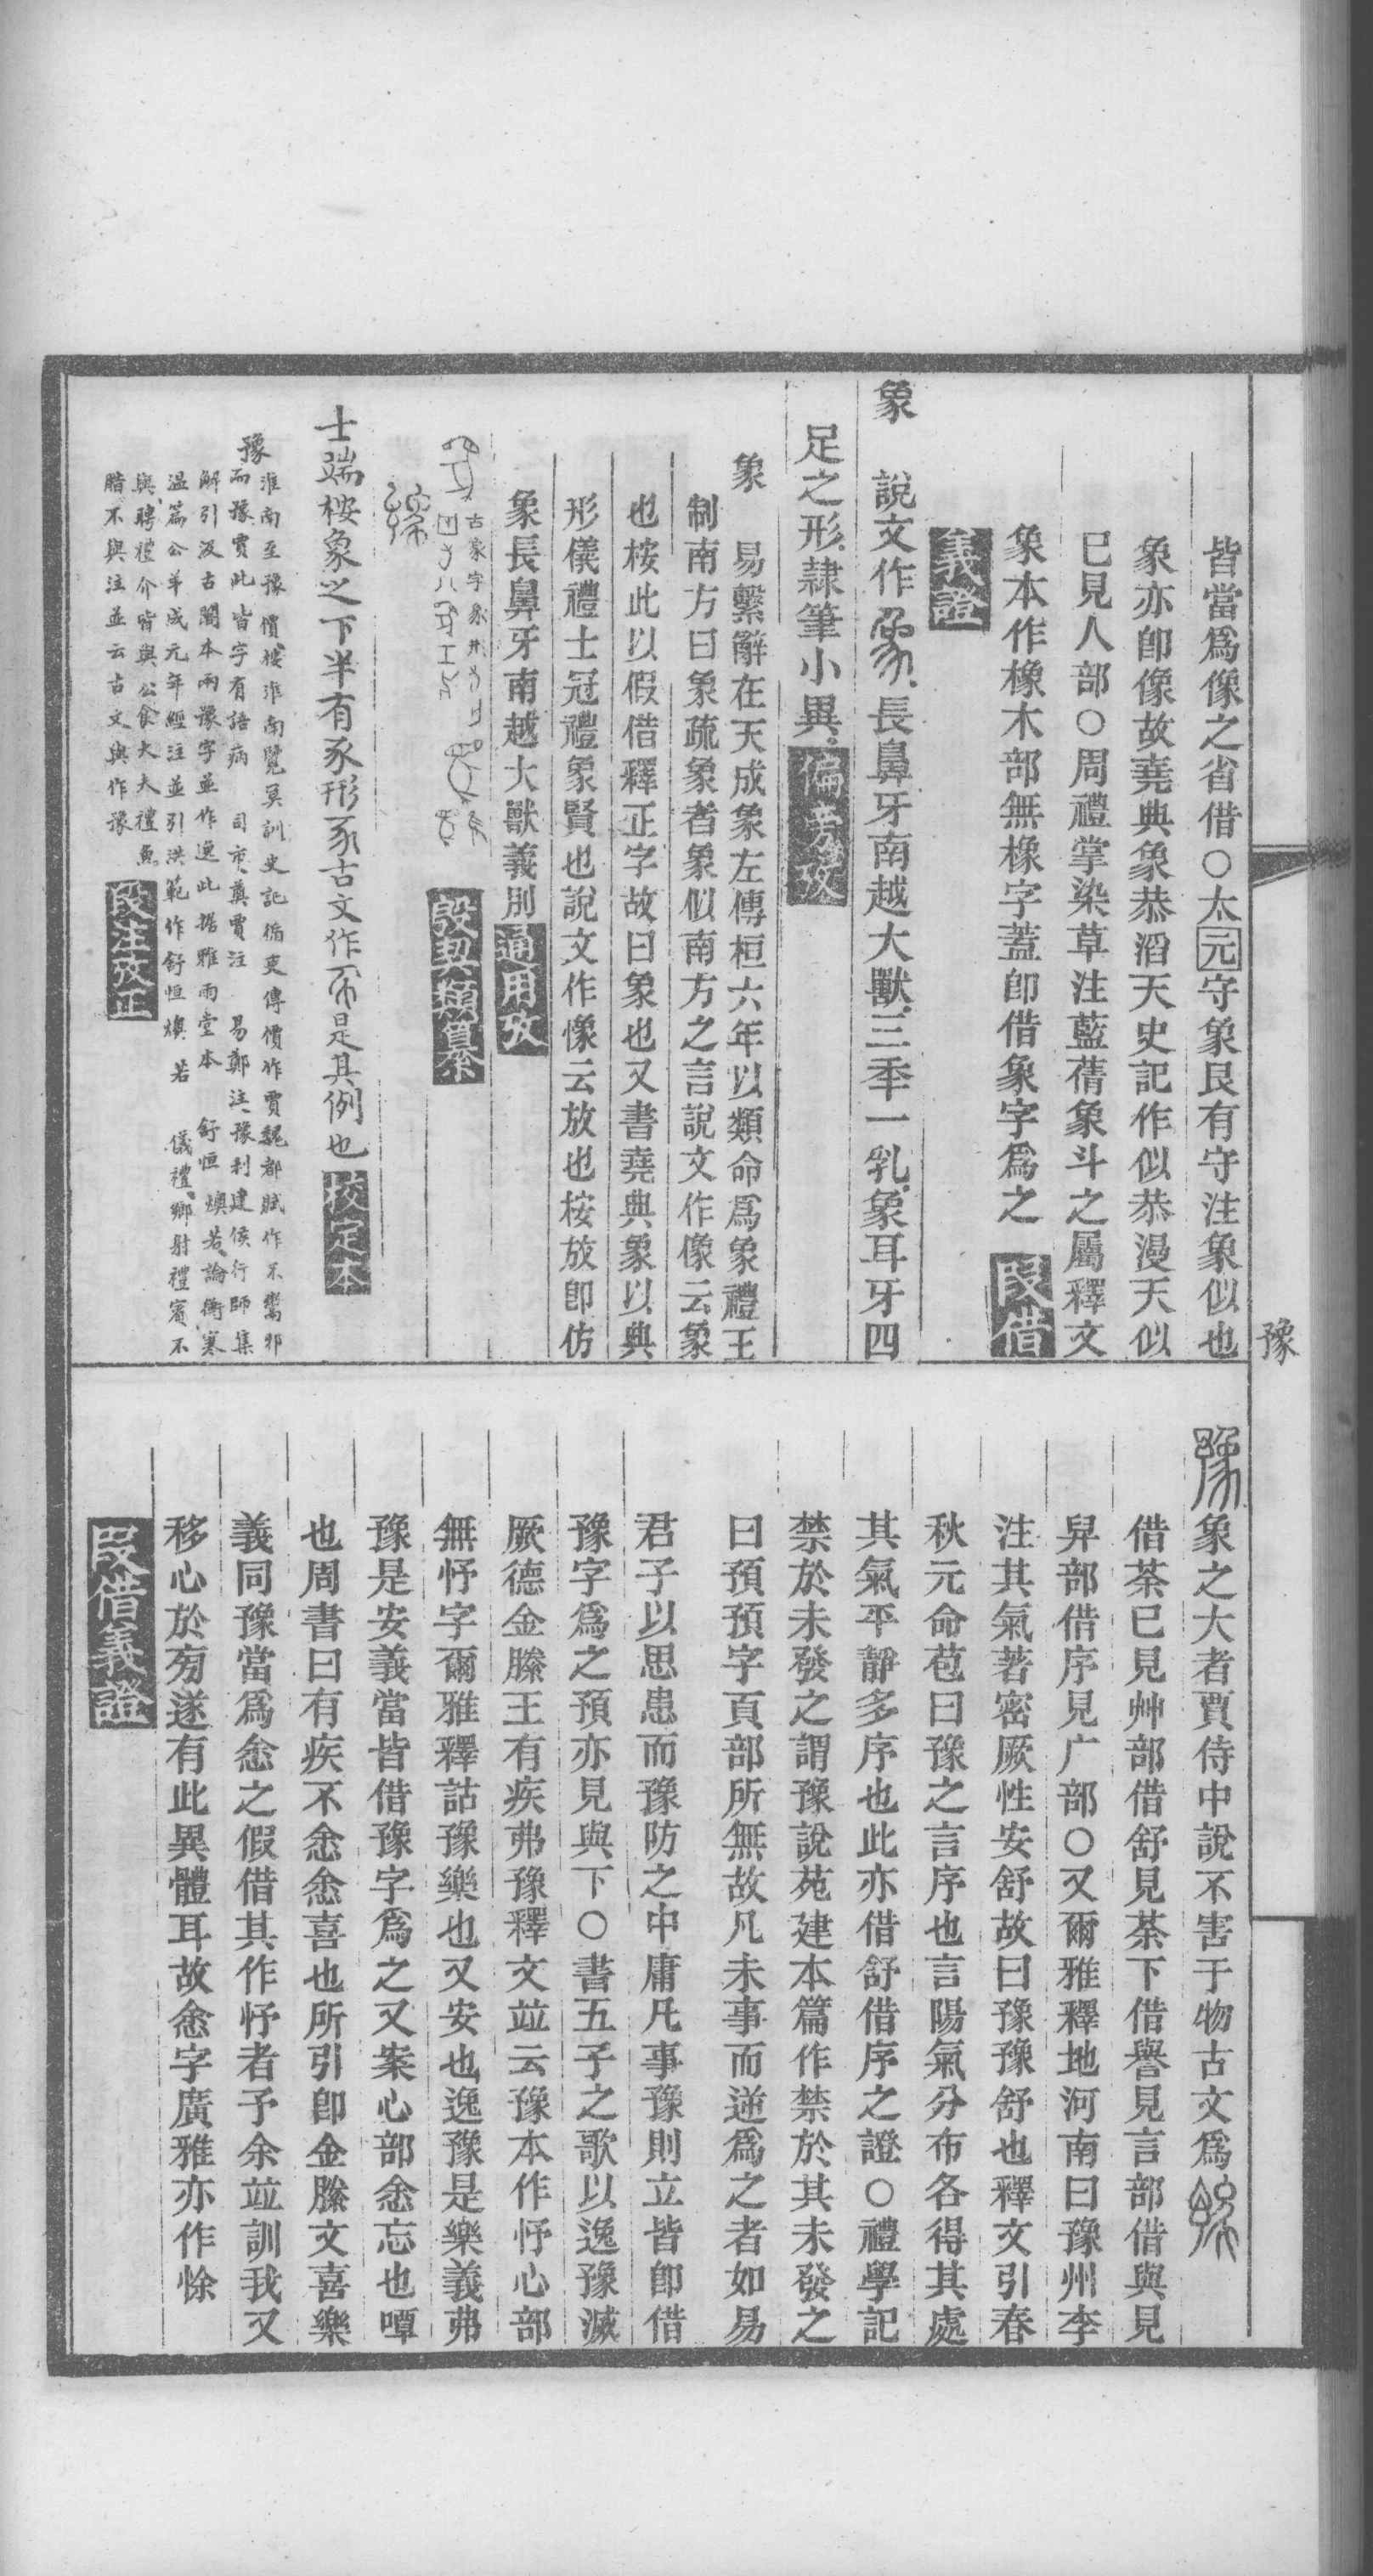 豫
皆當爲像之省借○太元守象艮有守注象似也
象亦卽像故堯典象恭滔天史記作似恭漫天似
巳見人部○周禮掌染草注藍蒨象斗之屬釋文
象本作橡木部無橡字蓋卽借象字爲之 叚借
義證
象 說文作長鼻牙南越大獸三秊一乳象耳牙四
足之形隷筆小異 偏旁攷
象 易繫辭在天成象左傳桓六年以類命爲象禮王
制南方曰象疏象者象似南方之言說文作像云象
也桉此以假借釋正字故曰象也又書堯典象以典
形儀禮士冠禮象賢也說文作像云放也桉放卽仿
象長鼻牙南越大獸義別 通用攷
古象字象形 殷契類纂
士端桉象之下半有豕形豕古文作是其例也 校定本
豫 淮南至豫價桉淮南覽冥訓史記循吏傳價作賈魏都賦作不鬻邪
而豫賈此皆字有語病 司市奠賈注 易鄭注豫利建侯行師集
解引汲古閣本兩豫字並作逸此據雅雨堂本 舒恒燠若論衡寒
温篇公羊成元年經注並引洪範作舒恒燠若 儀禮鄉射禮賓不
與聘禮介皆與公食大夫禮魚
腊不與注並云古文與作豫 段注攷正
象之大者賈侍中說不害于物古文爲
借荼巳見艸部借舒見荼下借譽見言部借與見
舁部借序見广部○又爾雅釋地河南曰豫州李
注其氣著密厥性安舒故曰豫豫舒也釋文引春
秋元命苞曰豫之言序也言陽氣分布各得其處
其氣平靜多序也此亦借舒借序之證○禮學記
禁於未發之謂豫說苑建本篇作禁於其未發之
曰預預字頁部所無故凡未事而逆爲之者如易
君子以思患而豫防之中庸凡事豫則立皆卽借
豫字爲之預亦見與下○書五子之歌以逸豫滅
厥德金縢王有疾弗豫釋文竝云豫本作忬心部
無忬字爾雅釋詁豫樂也又安也逸豫是樂義弗
豫是安義當皆借豫字爲之又案心部悆忘也嘾
也周書曰有疾不悆悆喜也所引卽金縢文喜樂
義同豫當爲悆之假借其作忬者予余竝訓我又
移心於旁遂有此異體耳故悆字廣雅亦作悇
叚借義證